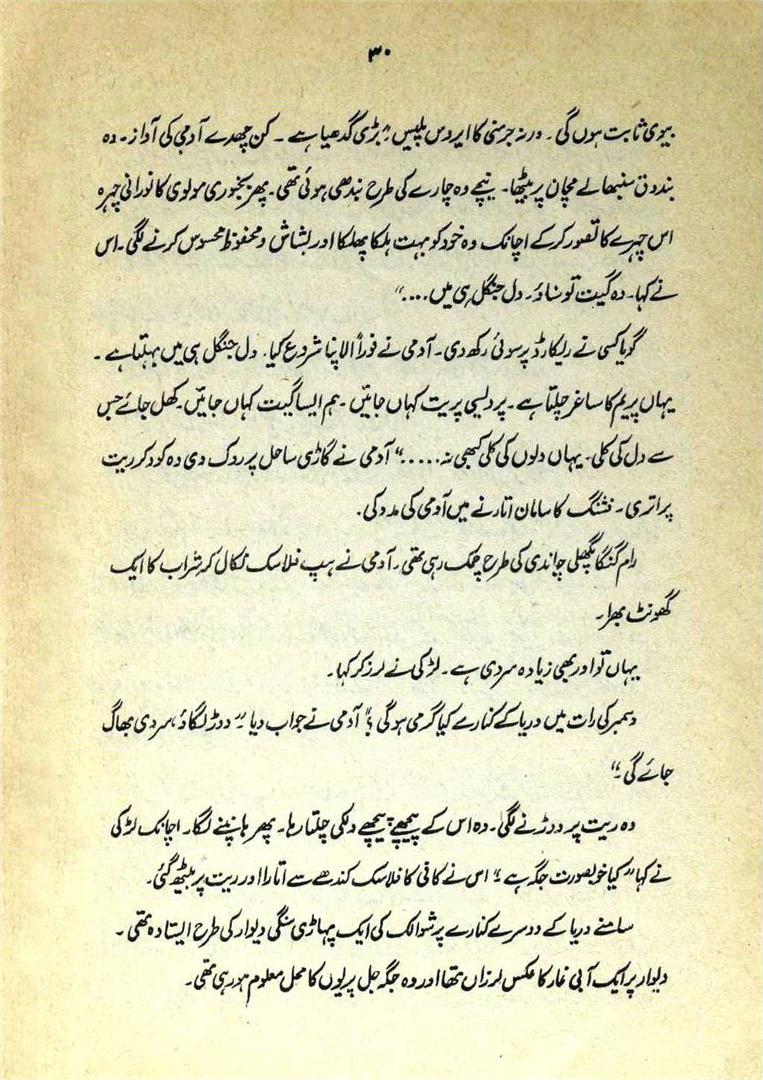 ۳۰
بیوی ثابت ہوں گی ۔ ورنہ جرمنی کا ایروس پلیس ۔" بڑی گدھیا ہے ۔ کن چھدے آدمی کی آواز ۔ وہ
بندوق سنبھالے مچان پر بیٹھا ۔ نیچے وہ چارے کی طرح بندھی ہوئی تھی ۔ پھر بجنوری مولوی کا نورانی چہرہ
اس چہرے کا تصور کر کے اچانک وہ خود کو بہت ہلکا پھلکا اور بشاش و محفوظ محسوس کرنے لگی ۔ اس
نے کہا ۔ وہ گیت تو سناؤ ۔ دل جنگل ہی میں ....“
گویا کسی نے ریکارڈ پر سوئی رکھ دی ۔ آدمی نے فوراً الاپنا شروع کیا ۔ دل جنگل ہی میں بہلتا ہے ۔
یہاں پریم کا ساغر چلتا ہے ۔ پردیسی پریت کہاں جائیں ۔ ہم ایسا گیت کہاں جائیں ۔ کھل جائے جس
سے دل کی کلی ۔ یہاں دلوں کی کلی کبھی نہ .....“ آدمی نے گاڑی ساحل پر روک دی وہ کود کر ریت
پر اتری ۔ فشنگ کا سامان اتارنے میں آدمی کی مدد کی ۔
رام گنگا پگھلی چاندی کی طرح چمک رہی تھی ۔ آدمی نے ہپ فلاسک نکال کر شراب کا ایک
گھونٹ بھرا ۔
یہاں تو اور بھی زیادہ سردی ہے ۔ لڑکی نے لرز کر کہا ۔
دسمبر کی رات میں دریا کے کنارے کیا گرمی ہو گی ؟“ آدمی نے جواب دیا ۔ ”دوڑ لگاؤ ، سردی بھاگ
جائے گی ۔“
وہ ریت پر دوڑنے لگی ۔ وہ اس کے پیچھے پیچھے دلکی چلتا رہا ۔ پھر ہانپنے لگا ۔ اچانک لڑکی
نے کہا ”کیا خوبصورت جگہ ہے ۔“ اس نے کافی کا فلاسک کندھے سے اتارا اور ریت پر بیٹھ گئی ۔
سامنے دریا کے دوسرے کنارے پر شوالک کی ایک پہاڑی سنگی دیوار کی طرح ایستادہ تھی ۔
دیوار پر ایک آبی غار کا عکس لرزاں تھا اور وہ جگہ جل پریوں کا محل معلوم ہو رہی تھی ۔